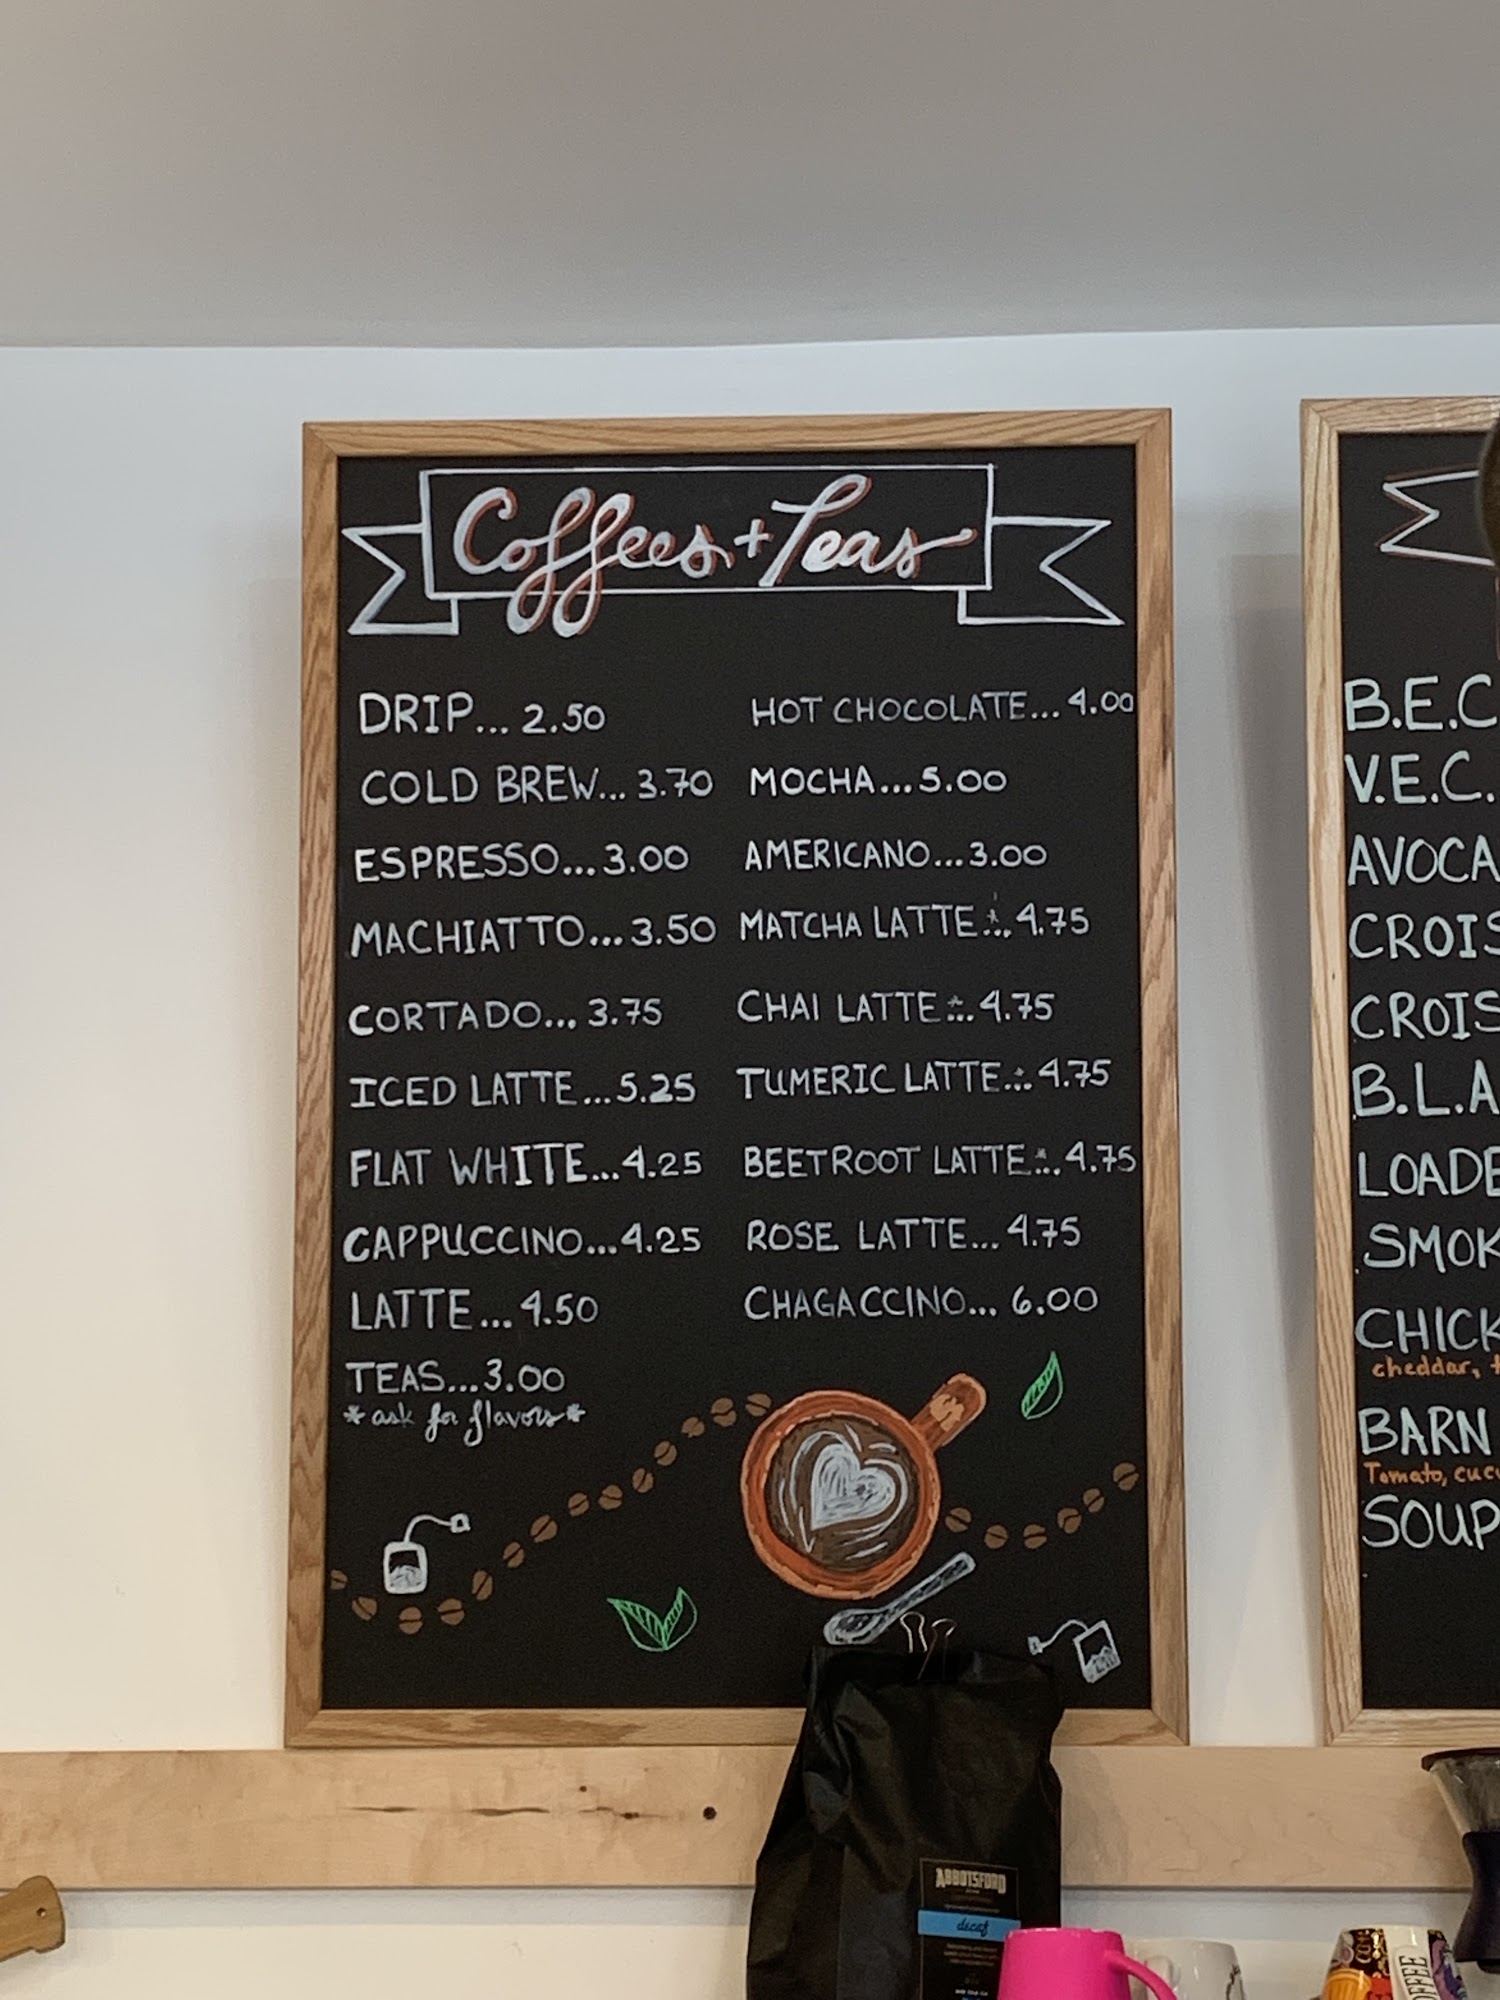 Coffees + Teas
DRIP... 2.50
COLD BREW... 3.70
ESPRESSO... 3.00
MACHIATTO... 3.50
CORTADO... 3.75
ICED LATTE... 5.25
FLAT WHITE... 4.25
CAPPUCCINO... 4.25
LATTE... 4.50
TEAS... 3.00
*ask for flavors*
HOT CHOCOLATE... 4.00
MOCHA... 5.00
AMERICANO... 3.00
MATCHA LATTE*... 4.75
CHAI LATTE*... 4.75
TUMERIC LATTE*... 4.75
BEETROOT LATTE*... 4.75
ROSE LATTE... 4.75
CHAGACCINO... 6.00
B.E.C
V.E.C.
AVOCA
CROIS
CROIS
B.L.A
LOADE
SMOK
CHICK
cheddar, t
BARN
Tomato, cuc
SOUP
ABBOTSFORD
decaf